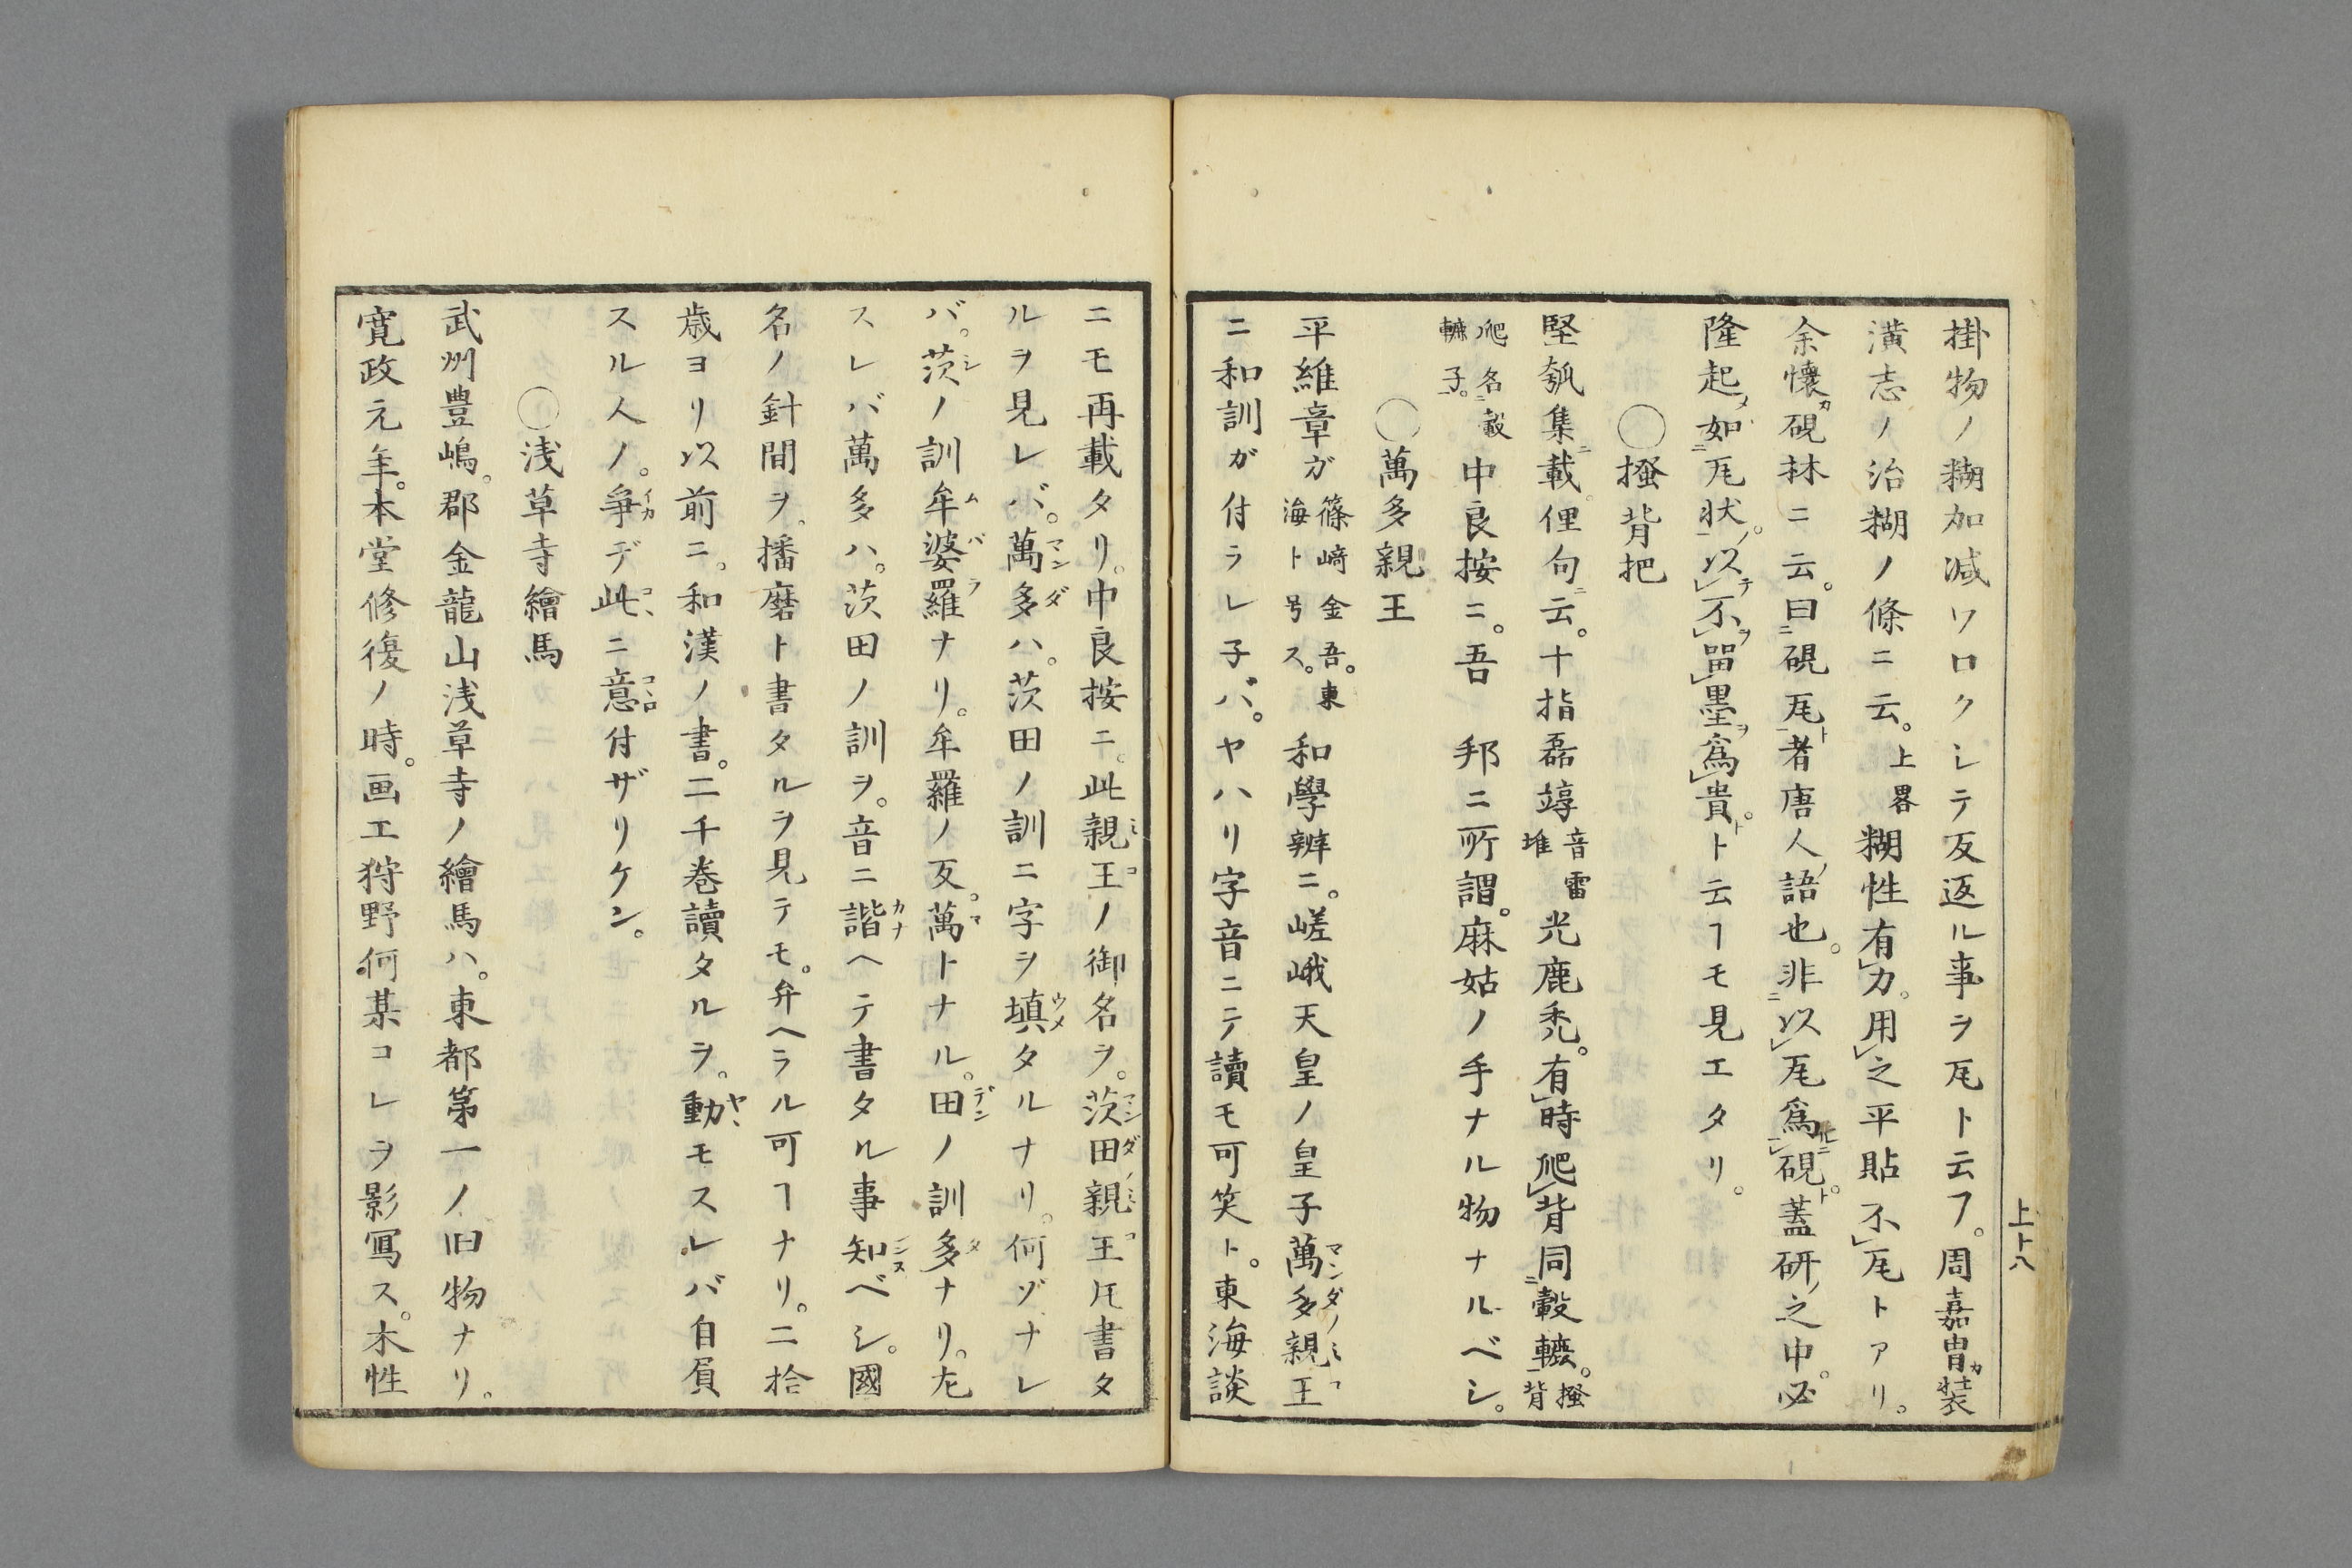 上ト八
掛物ノ糊加减ワロクシテ反返ル事ヲ瓦ト云フ。周嘉冑カ装
潢志ノ治糊ノ條ニ云。上畧糊性有力。用之平貼不瓦トアリ。
余懷カ硯林ニ云。曰硯瓦者唐人語也。非以瓦爲硯。蓋研之中。必
隆起如瓦状。以不留墨爲貴ト云ヿモ見エタリ。
○搔背把
堅瓠集載俚句云。十指磊𥪕音雷堆光鹿禿。有時爬背同轂轆。搔背
爬名轂轆子。中良按ニ。吾 邦ニ所謂。麻姑ノ手ナル物ナルベシ。
○萬多親王
平維章ガ篠﨑金吾。東海ト号ス。和學辨ニ。嵯峨天皇ノ皇子萬多親王マンダノミコ
ニ和訓ガ付ラレ子バ。ヤハリ字音ニテ讀モ可笑ト。東海談
ニモ再載タリ。中良按ニ。此親王ミコノ御名ヲ。茨田親王マンダノミコ𪜈書タ
ルヲ見レバ。萬多マンダハ。茨田ノ訓ニ字ヲ填ウメタルナリ。何ヅナレ
バ。茨シノ訓牟婆羅ムバラナリ。牟羅ノ反。萬マトナル。田デンノ訓多タナリ。尢
スレバ萬多ハ。茨田ノ訓ヲ。音ニ諧カナヘテ書タル事知ンヌベシ。國
名ノ針間ヲ。播磨ト書タルヲ見テモ。弁ヘラル可ヿナリ。二拾
歳ヨリ以前ニ。和漢ノ書。二千巻讀タルヲ。動ヤヽモスレバ自負
スル人ノ。爭イカデ此コヽニ意コヽロ付ザリケン。
○浅草寺繪馬
武州豊嶋。郡金龍山浅草寺ノ繪馬ハ。東都第一ノ旧物ナリ。
寛政元年。本堂修復ノ時。画工狩野何某コレヲ影冩ス。木性